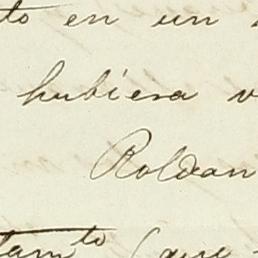 to en un
hubiera v
Roldan
tamto (que